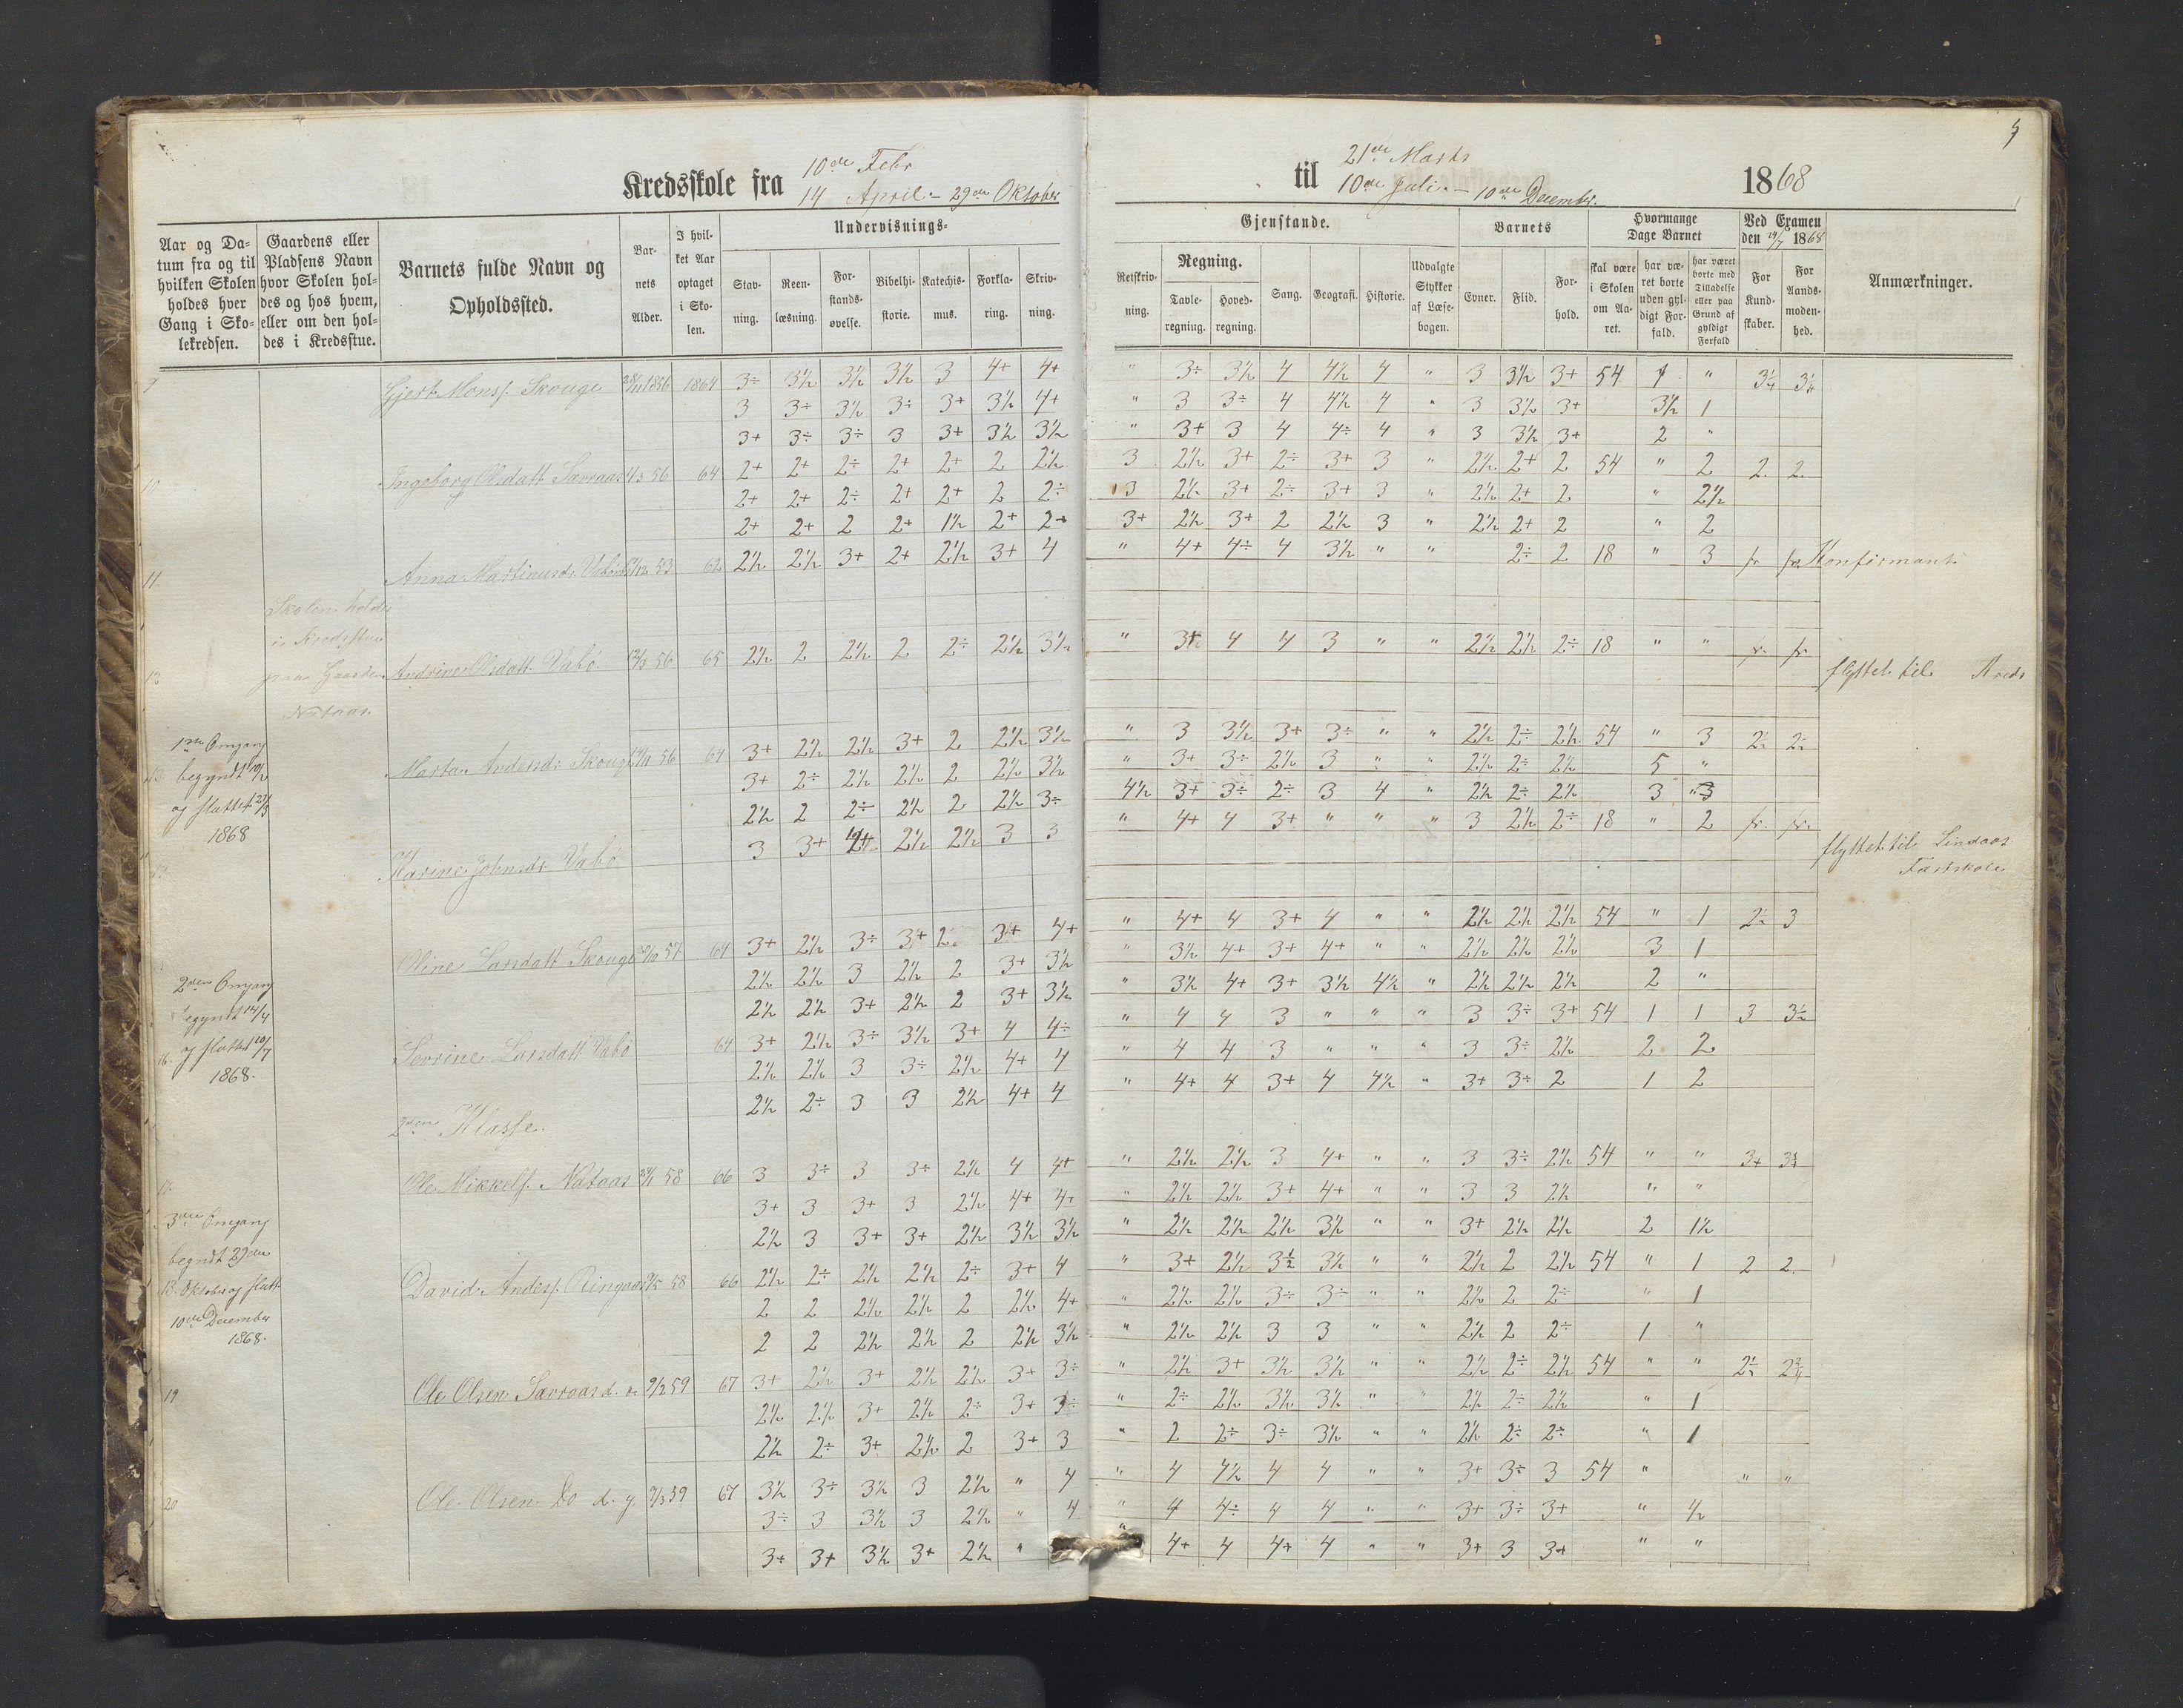 5
Kredsskole fra 10de Febr til 21de Marts 1868
14 April - 29de Oktober 10de Juli - 10de December.
Aar og Datum fra og til hvilken Skolen holdes hver Gang i Skolekredsen.
Gaardens eller Pladsens Navn hvor Skolen holdes og hos hvem, eller om den holdes i Kredsstue.
Barnets fulde Navn og Opholdssted.
Barnets Alder.
I hvilket Aar optaget i Skolen.
Undervisnings-
Stavning.
Reenlæsning.
Forstandsøvelse.
Bibelhistorie.
Katechismus.
Forklaring.
Skrivning.
Gjenstande.
Retskrivning.
Regning.
Tavleregning.
Hovedregning.
Sang.
Geografi.
Historie.
Udvalgte Stykker af Læsebogen.
Barnets
Evner.
Flid.
Forhold.
Hvormange Dage Barnet
skal være i Skolen om Aaret.
har været borte uden gyldigt Forfald.
har været borte med Tilladelse eller paa Grund af gyldigt Forfald
Ved Examen den 19/7 1868
For Kundskaber.
For Aandsmodenhed.
Anmærkninger.
Gjert Monss. Skouge 28/11 1856 1864 3÷ 3½ 3½ 3½ 3 4+ 4+ " 3÷ 3½ 4 4½ 4 " 3 3½ 3+ 54 4 "
3 3÷ 3½ 3÷ 3+ 3½ 4+ " 3 3÷ 4 4½ 4 " 3 3½ 3+ 3½ 1
3+ 3÷ 3÷ 3 3+ 3½ 3½ " 3+ 3 4 4÷ 4 " 3 3½ 3+ 2 "
10 Ingeborg Olsdatt Sævraas 56 64 2+ 2+ 2÷ 2+ 2+ 2 2½ 3 2½ 3+ 2÷ 3+ 3 " 2½ 2+ 2 54 " 2 2 2
2+ 2+ 2÷ 2+ 2+ 2 2÷ 3 2½ 3+ 2÷ 3+ 3 " 2½ 2+ 2 " 2½
2+ 2+ 2 2+ 1½ 2+ 2+ 3+ 2½ 3+ 2 2½ 3 " 2½ 2+ 2 " 2
11 Anna Martinusdr Vabø 53 62 2½ 2½ 3+ 2+ 2½ 3+ 4 " 4+ 4÷ 4 3½ " " 2÷ 2 18 " 3 fr fr Konfirmant
Skolen holdes
i Kredsstue
paa Gaarden
Nataas
12 Andrine Olsdatt Vabø 56 65 2½ 2 2½ 2 2÷ 2½ 3½ " 3+ 4 4 3 " " 2½ 2½ 2÷ 18 " " fr. fr flyttet til Kreds
1ste Omgang
begyndt 10/2
og sluttet 21/3
1868
Marta Andersdr Skouge 56 64 3+ 2½ 2½ 3+ 2 2½ 3½ " 3 3½ 3+ 3÷ " " 2½ 2÷ 2½ 54 " 3 2½ 2½
3+ 2÷ 2½ 2½ 2 2½ 3½ " 3+ 3÷ 2½ 3 " " 2½ 2÷ 2½ 5 "
2½ 2 2÷ 2½ 2 2½ 3÷ 4½ 3+ 3÷ 2÷ 3 4 " 2½ 2÷ 2½ 3 3
Karine Johnsdr Vabø 3 3+ 2½ 2½ 3 3 " 4+ 4 3+ " " " 3 2½ 2÷ 18 " 2 fr. fr. flyttet til Lindaas
Fastskole
Oline Larsdatt Skouge 57 64 3+ 2½ 3÷ 3+ 2 3+ 4+ " 4+ 4 3+ 4 " " 2½ 2½ 2½ 54 " 1 2½ 3
2½ 2½ 3 2½ 2 3+ 3½ " 3½ 4+ 3+ 4+ " " 2½ 2½ 2½ 3 1
2½ 2½ 3+ 2½ 2 3+ 3½ " 3½ 4+ 3+ 3½ 4½ " 2½ 2½ 2½ 2 "
2den Omgang
begyndt 14/4
og sluttet 10/7
1868.
16. Sevrine Larsdatt Vabø 64 3+ 2½ 3÷ 3½ 3+ 4 4÷ " 4 4 3 " " " 3 3÷ 3+ 54 1 1 3 3½
2½ 2½ 3 3÷ 2½ 4+ 4 " 4 4 3 " " " 3 3÷ 2½ 2 2
2½ 2÷ 3 3 2½ 4+ 4 " 4+ 4 3+ 4 4½ " 3+ 3÷ 2 1 2
2den Klasse.
Ole Mikkels. Nataas 58 66 3 3÷ 3 3÷ 2½ 4 4+ " 2½ 2½ 3 4+ " " 3 3÷ 2½ 54 " "
3+ 3 3+ 3 2½ 4+ 4+ " 2½ 2½ 3+ 4+ " " 3 3 2½ " "
2½ 3 3+ 3+ 2½ 3½ 3½ " 2½ 2½ 2½ 3½ " " 3+ 2½ 2½ 2 1½
3die Omgang
begndt 29den
Oktober og slutt
10de December
1868.
David Anders. Ringaas 58 66 2½ 2÷ 2½ 2½ 2÷ 3+ 4 " 3+ 2½ 3½ 3½ " " 2½ 2 2½ 54 " 1 2 2
2 2 2½ 2½ 2 2½ 4+ " 2½ 2½ 3÷ 3÷ " " 2½ 2 2÷ " 1
2 2 2½ 2½ 2 2½ 3½ " 2½ 2½ 3 3 " " 2½ 2 2÷ 1 "
19 Ole Olsen Sævraas d. æ 9/2 59 67 3+ 2½ 3+ 2½ 2½ 3+ 3÷ " 2½ 3+ 3½ 3½ " " 2½ 2÷ 2½ 54 " "
2½ 2½ 3+ 2½ 2÷ 3+ 3÷ " 2÷ 2½ 3½ 3½ " " 2½ 2÷ 2½ " 1
2½ 2÷ 3+ 2½ 2 3+ 3 " 2 2÷ 3÷ 3½ " " 2½ 2÷ 2÷ " 1
20 Ole Olsen Do d. y. 9/3 59 67 3½ 3÷ 3½ 3 2½ " 4 " 4 4½ 4 4 " " 3+ 3÷ 3 54 " " "
3÷ 3 3½ 3 2½ " 4 " 4 4÷ 4 4 " " 3+ 3÷ 3+ " ½
3+ 3+ 3½ 3+ 2½ " " 4+ 4 4+ 4 " " 3+ 3 3+ " "